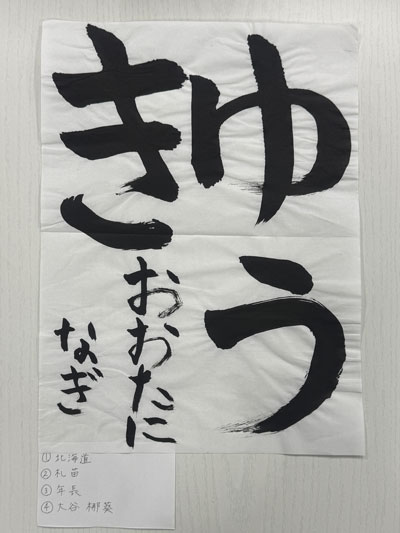 ゆう
き
おおたに
なぎ
①北海道
②札苗
③年長
④大谷 梛葵